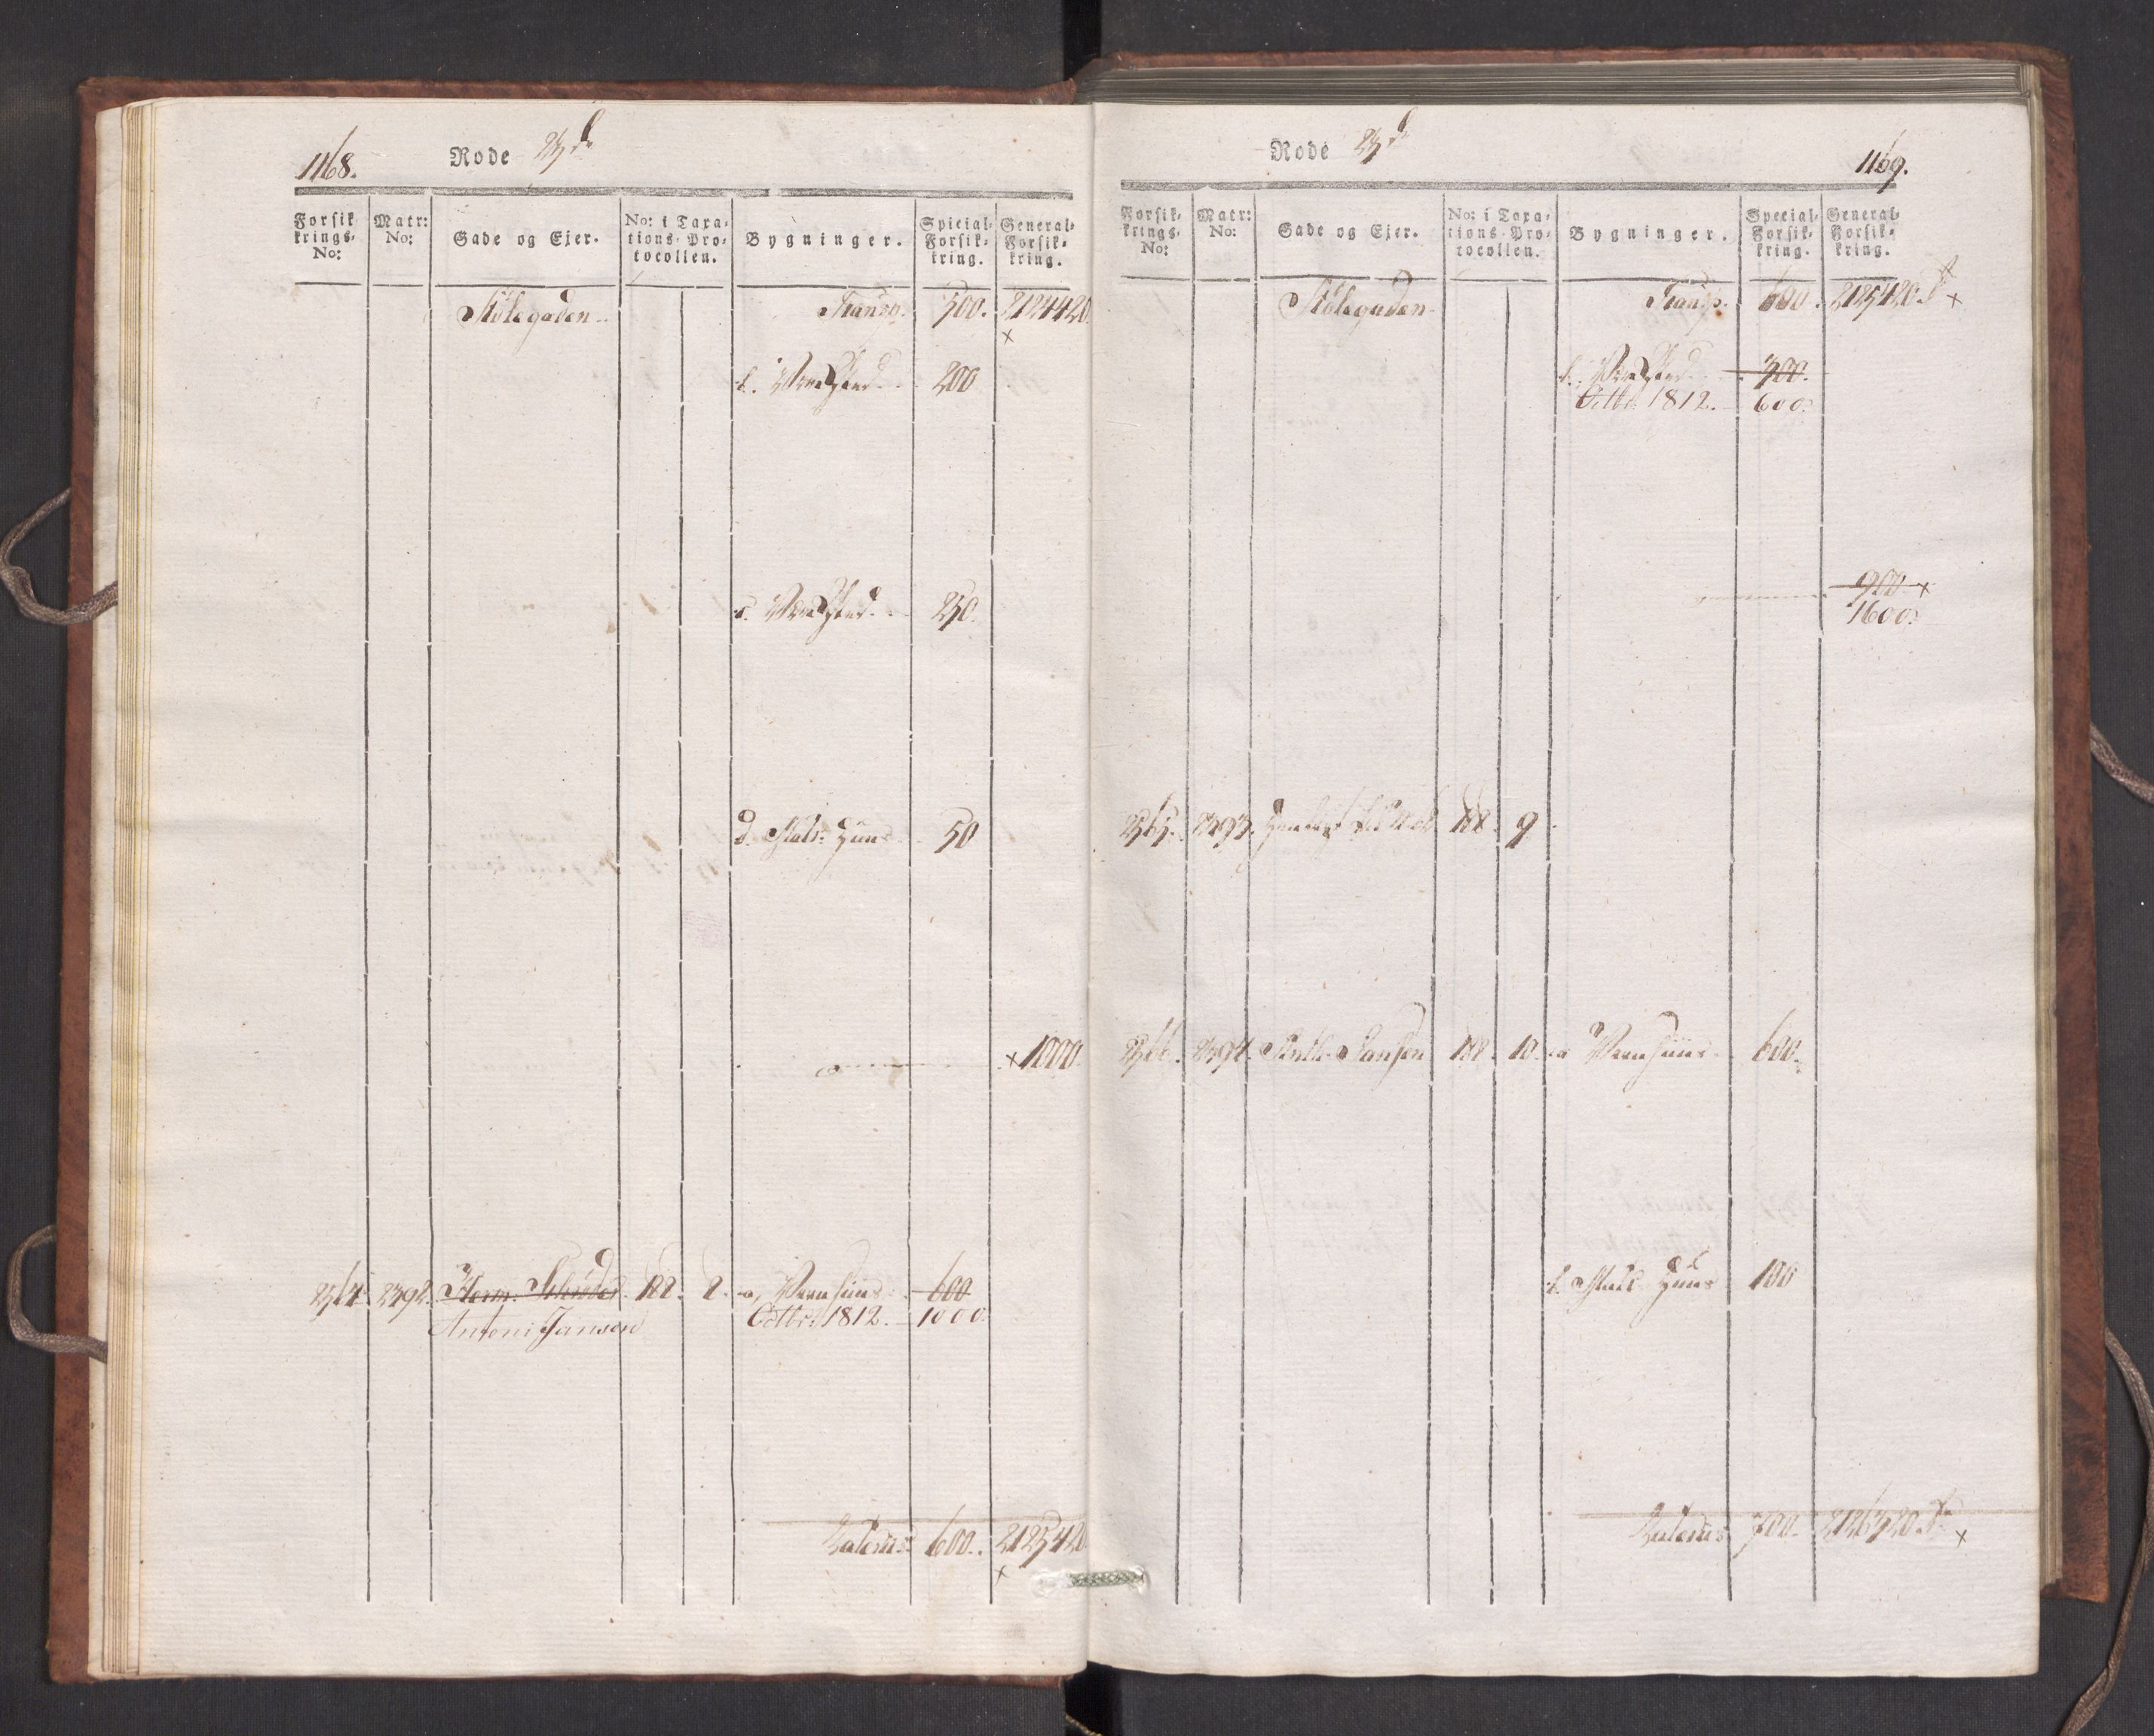 1168.
Rode 23de
Forsik-
krings-
No:
Matr:
No:
Gade og Ejer.
No: i Taxa-
tions-Pro-
tocollen.
Bygninger.
Special-
Forsik-
kring.
General-
Forsik-
kring.
Kölegaden. Transp. 500. 2124420
b. Værksted 200
c. Værksted 250.
d. Hus 50
1000.
2564 2392. Herm. Schröder 188. 8. a, Vaanhuus 600
Antoni Jansen Octbr. 1812. 1000.
Lateris 600. 2125420
Rode 23de
1169.
Forsik-
krings-
No:
Matr:
No:
Gade og Ejer.
No: i Taxa-
tions-Pro-
tocollen.
Bygninger.
Special-
Forsik-
kring.
General-
Forsik-
kring.
Kölegaden Transp. 600. 2125420.
b. Værksted 300.
Octbr. 1812. 600.
900
1600.
2565. 2393. 188. 9.
2566. 2394. Jansen 188. 10. a Vaanhuus 600.
b. Huus 100
Lateris 700. 2126320.